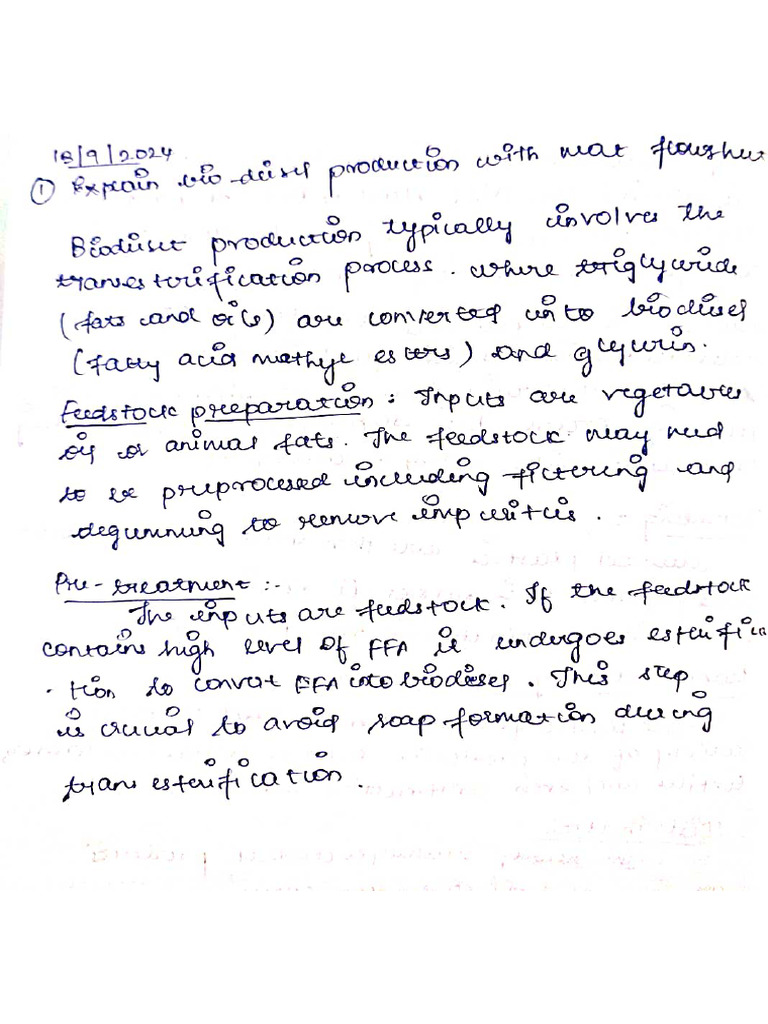 18/9/2024
① Explain bio-diesel production with neat flowsheet
Biodiesel production typically involves the
transesterification process. where triglyceride
(fats and oils) are converted into biodiesel
(fatty acid methyl esters) and glycerin.
Feedstock preparation: Inputs are vegetables
oil or animal fats. The feedstock may need
to be preprocessed including filtering and
degumming to remove impurities.
Pre-treatment :-
The inputs are feedstock. If the feedstock
contains high level of FFA it undergoes esterifica
- tion to convert FFA into biodiesel. This step
is crucial to avoid soap formation during
transesterification.